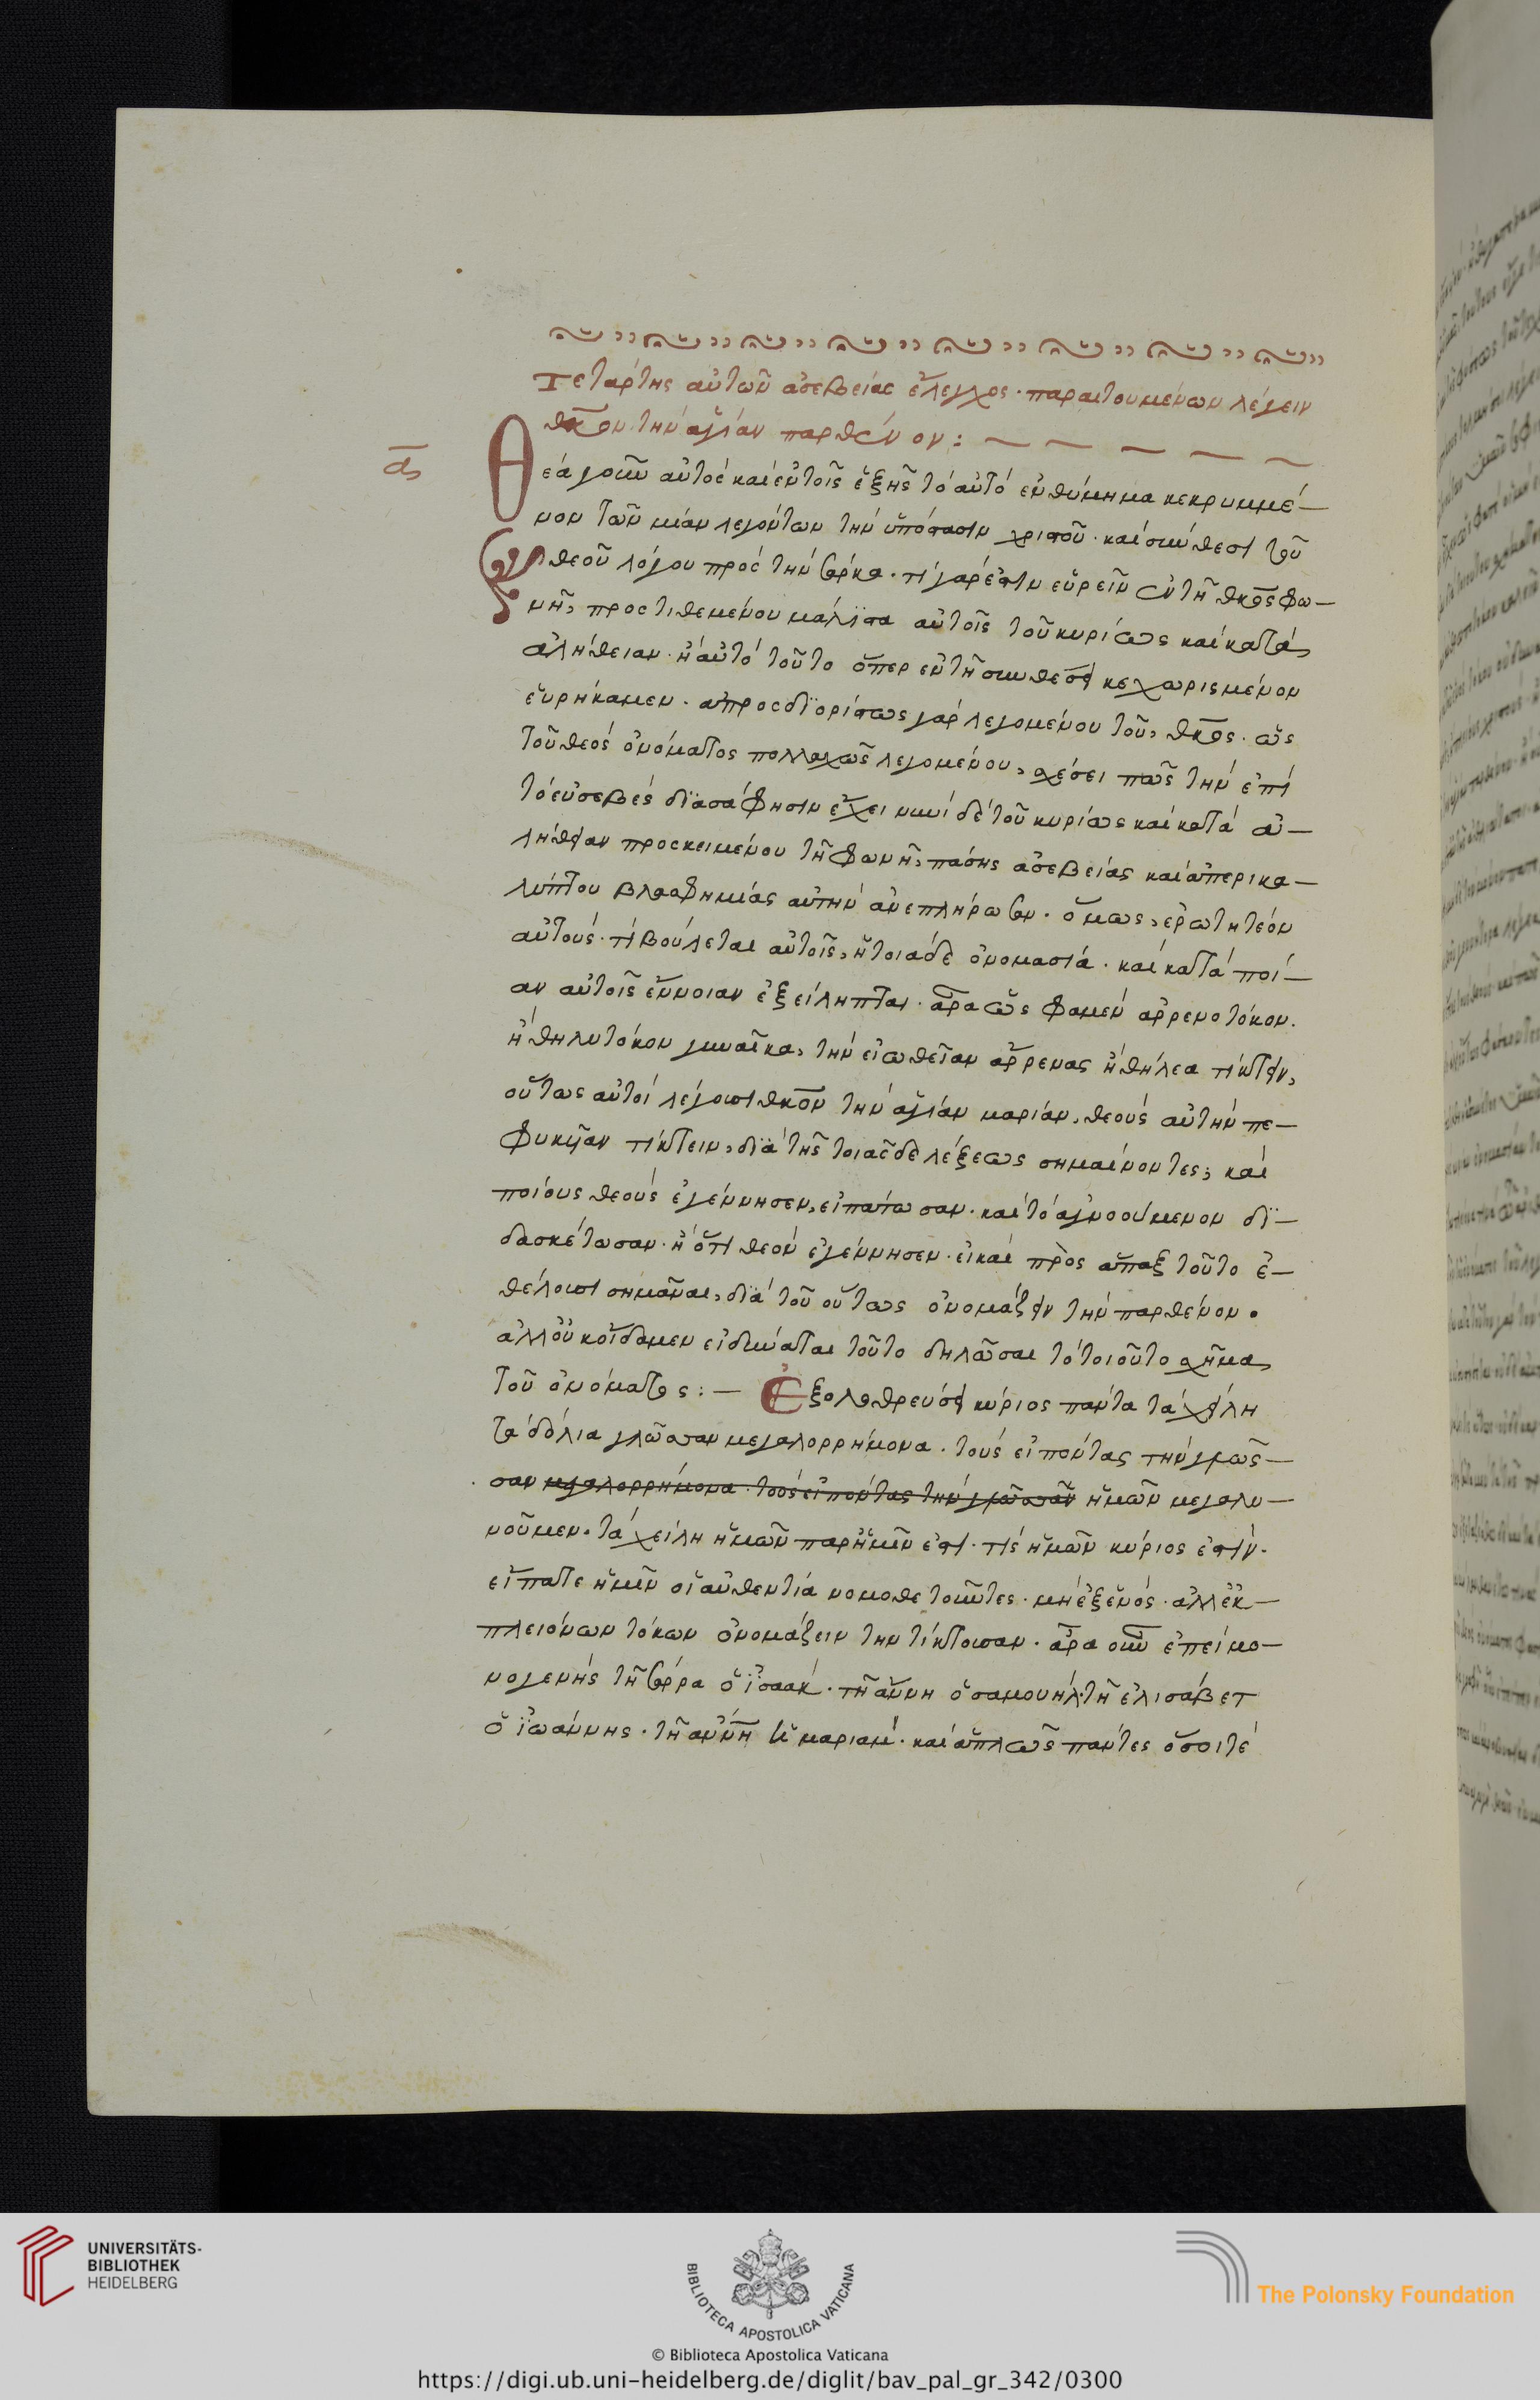 Τετάρτης αὐτῶν ἀσεβείας ἔλεγχος· παραιτουμένων λέγειν
θκον τὴν ἁγίαν παρθένον: —
δ
Θεὰ γοῦν αὐτοὶ καὶ ἐν τοῖς ἑξῆς τὸ αὐτὸ ἐνθύμημα κεκρυμμέ-
νον τῶν μίαν λεγόντων τὴν ὑπόστασιν χριστοῦ· καὶ σύνθεσι τοῦ
θεοῦ λόγου πρὸς τὴν σάρκα· τί γάρ ἐστιν εὑρεῖν ἐν τῆ θκος φω-
νῆ, προστιθεμένου μάλιστα αὐτοῖς τοῦ κυρίως καὶ κατὰ
ἀλήθειαν· ἢ αὐτὸ τοῦτο ὅπερ ἐν τῆ συνθέσει κεχωρισμένον
εὑρήκαμεν· ἀπροσδιορίστως γὰρ λεγομένου τοῦ, θκος· ὡς
τοῦ θεὸς ὀνόματος πολλαχῶς λεγομένου, σχέσει πῶς τὴν ἐπὶ
τὸ εὐσεβὲς διασάφησιν ἔχει νυνὶ δὲ τοῦ κυρίως καὶ κατὰ ἀ-
λήθειαν προσκειμένου τῆ φωνῆ, πάσης ἀσεβείας καὶ ἀπερικα-
λύπτου βλασφημίας αὐτὴν ἀνεπλήρωσαν· ὅμως, ἐρωτητέον
αὐτούς· τί βούλεται αὐτοῖς, ἡ τοιάδε ὀνομασία· καὶ κατὰ ποί-
αν αὐτοῖς ἔννοιαν ἐξείληπται· ἆρα ὡς φαμὲν ἀρρενοτόκον·
ἢ θηλυτόκον γυναῖκα, τὴν εἰωθεῖαν ἄρρενας ἢ θήλεα τίκτειν,
οὕτως αὐτοὶ λέγουσι θκον τὴν ἁγίαν μαρίαν, θεοὺς αὐτὴν πε-
φυκῆαν τίκτειν, διὰ τῆς τοιᾶσδε λέξεως σημαίνοντες, καὶ
ποίους θεοὺς ἐγέννησεν, εἰπάτωσαν· καὶ τὸ ἀγνοούμενον δι-
δασκέτωσαν· ἢ ὅτι θεὸν ἐγέννησεν· εἰ καὶ πρὸς ἅπαξ τοῦτο ἐ-
θέλουσι σημᾶναι, διὰ τοῦ οὕτως ὀνομάζειν τὴν παρθένον·
ἀλλ οὐκ οἴδαμεν εἰ δύναται τοῦτο δηλῶσαι τὸ τοιοῦτο σχῆμα
τοῦ ὀνόματος: — Ἐξολοθρεύσει κύριος πάντα τὰ χείλη
τὰ δόλια γλῶσσαν μεγαλορρήμονα· τοὺς εἰπόντας τὴν γλῶσ-
σαν μεγαλορρήμονα· τοὺς εἰπόντας τὴν γλῶσσαν ἡμῶν μεγαλυ-
νοῦμεν· τὰ χείλη ἡμῶν παρ ἡμῖν ἐστι· τίς ἡμῶν κύριος ἐστίν·
εἴπατε ἡμῖν οἱ αὐθεντία νομοθετοῦντες· μὴ ἐξ ἑνός· ἀλλ ἐκ-
πλειόνων τόκων ὀνομάζειν τὴν τίκτουσαν· ἆρα οὖν ἐπεὶ μο-
νογενὴς τῆ σάρρα ὁ ἰσαάκ· τῆ ἄννη ὁ σαμουήλ· τῆ ἐλισάβετ
ὁ ἰωάννης· τῆ ἄννη ἡ μαριάμ· καὶ ἁπλῶς πάντες ὅσοι τὲ
UNIVERSITÄTS-
BIBLIOTHEK
HEIDELBERG
BIBLIOTECA APOSTOLICA VATICANA
The Polonsky Foundation
© Biblioteca Apostolica Vaticana
https://digi.ub.uni-heidelberg.de/diglit/bav_pal_gr_342/0300